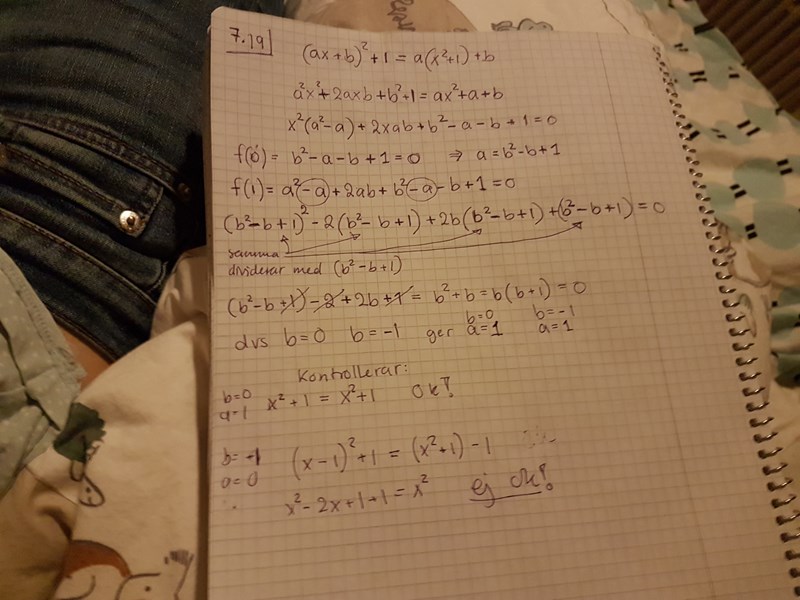 7.19
(ax+b)²+1 = a(x²+1)+b
a²x²+2axb+b²+1=ax²+a+b
x²(a²-a)+2xab+b²-a-b+1=0
f(0)= b²-a-b+1=0 ⇒ a=b²-b+1
f(1)=a²-a+2ab+b²-a-b+1=0
(b²-b+1)²-2(b²-b+1)+2b(b²-b+1)+(b²-b+1)=0
samma
dividerar med (b²-b+1)
(b²-b+1)-2+2b+1= b²+b=b(b+1)=0
dvs b=0 b=-1 ger b=0 a=1 b=-1 a=1
Kontrollerar:
b=0 a=1 x²+1=x²+1 Ok!
b=-1 a=0 (x-1)²+1=(x²+1)-1
x²-2x+1+1=x² ej ok!